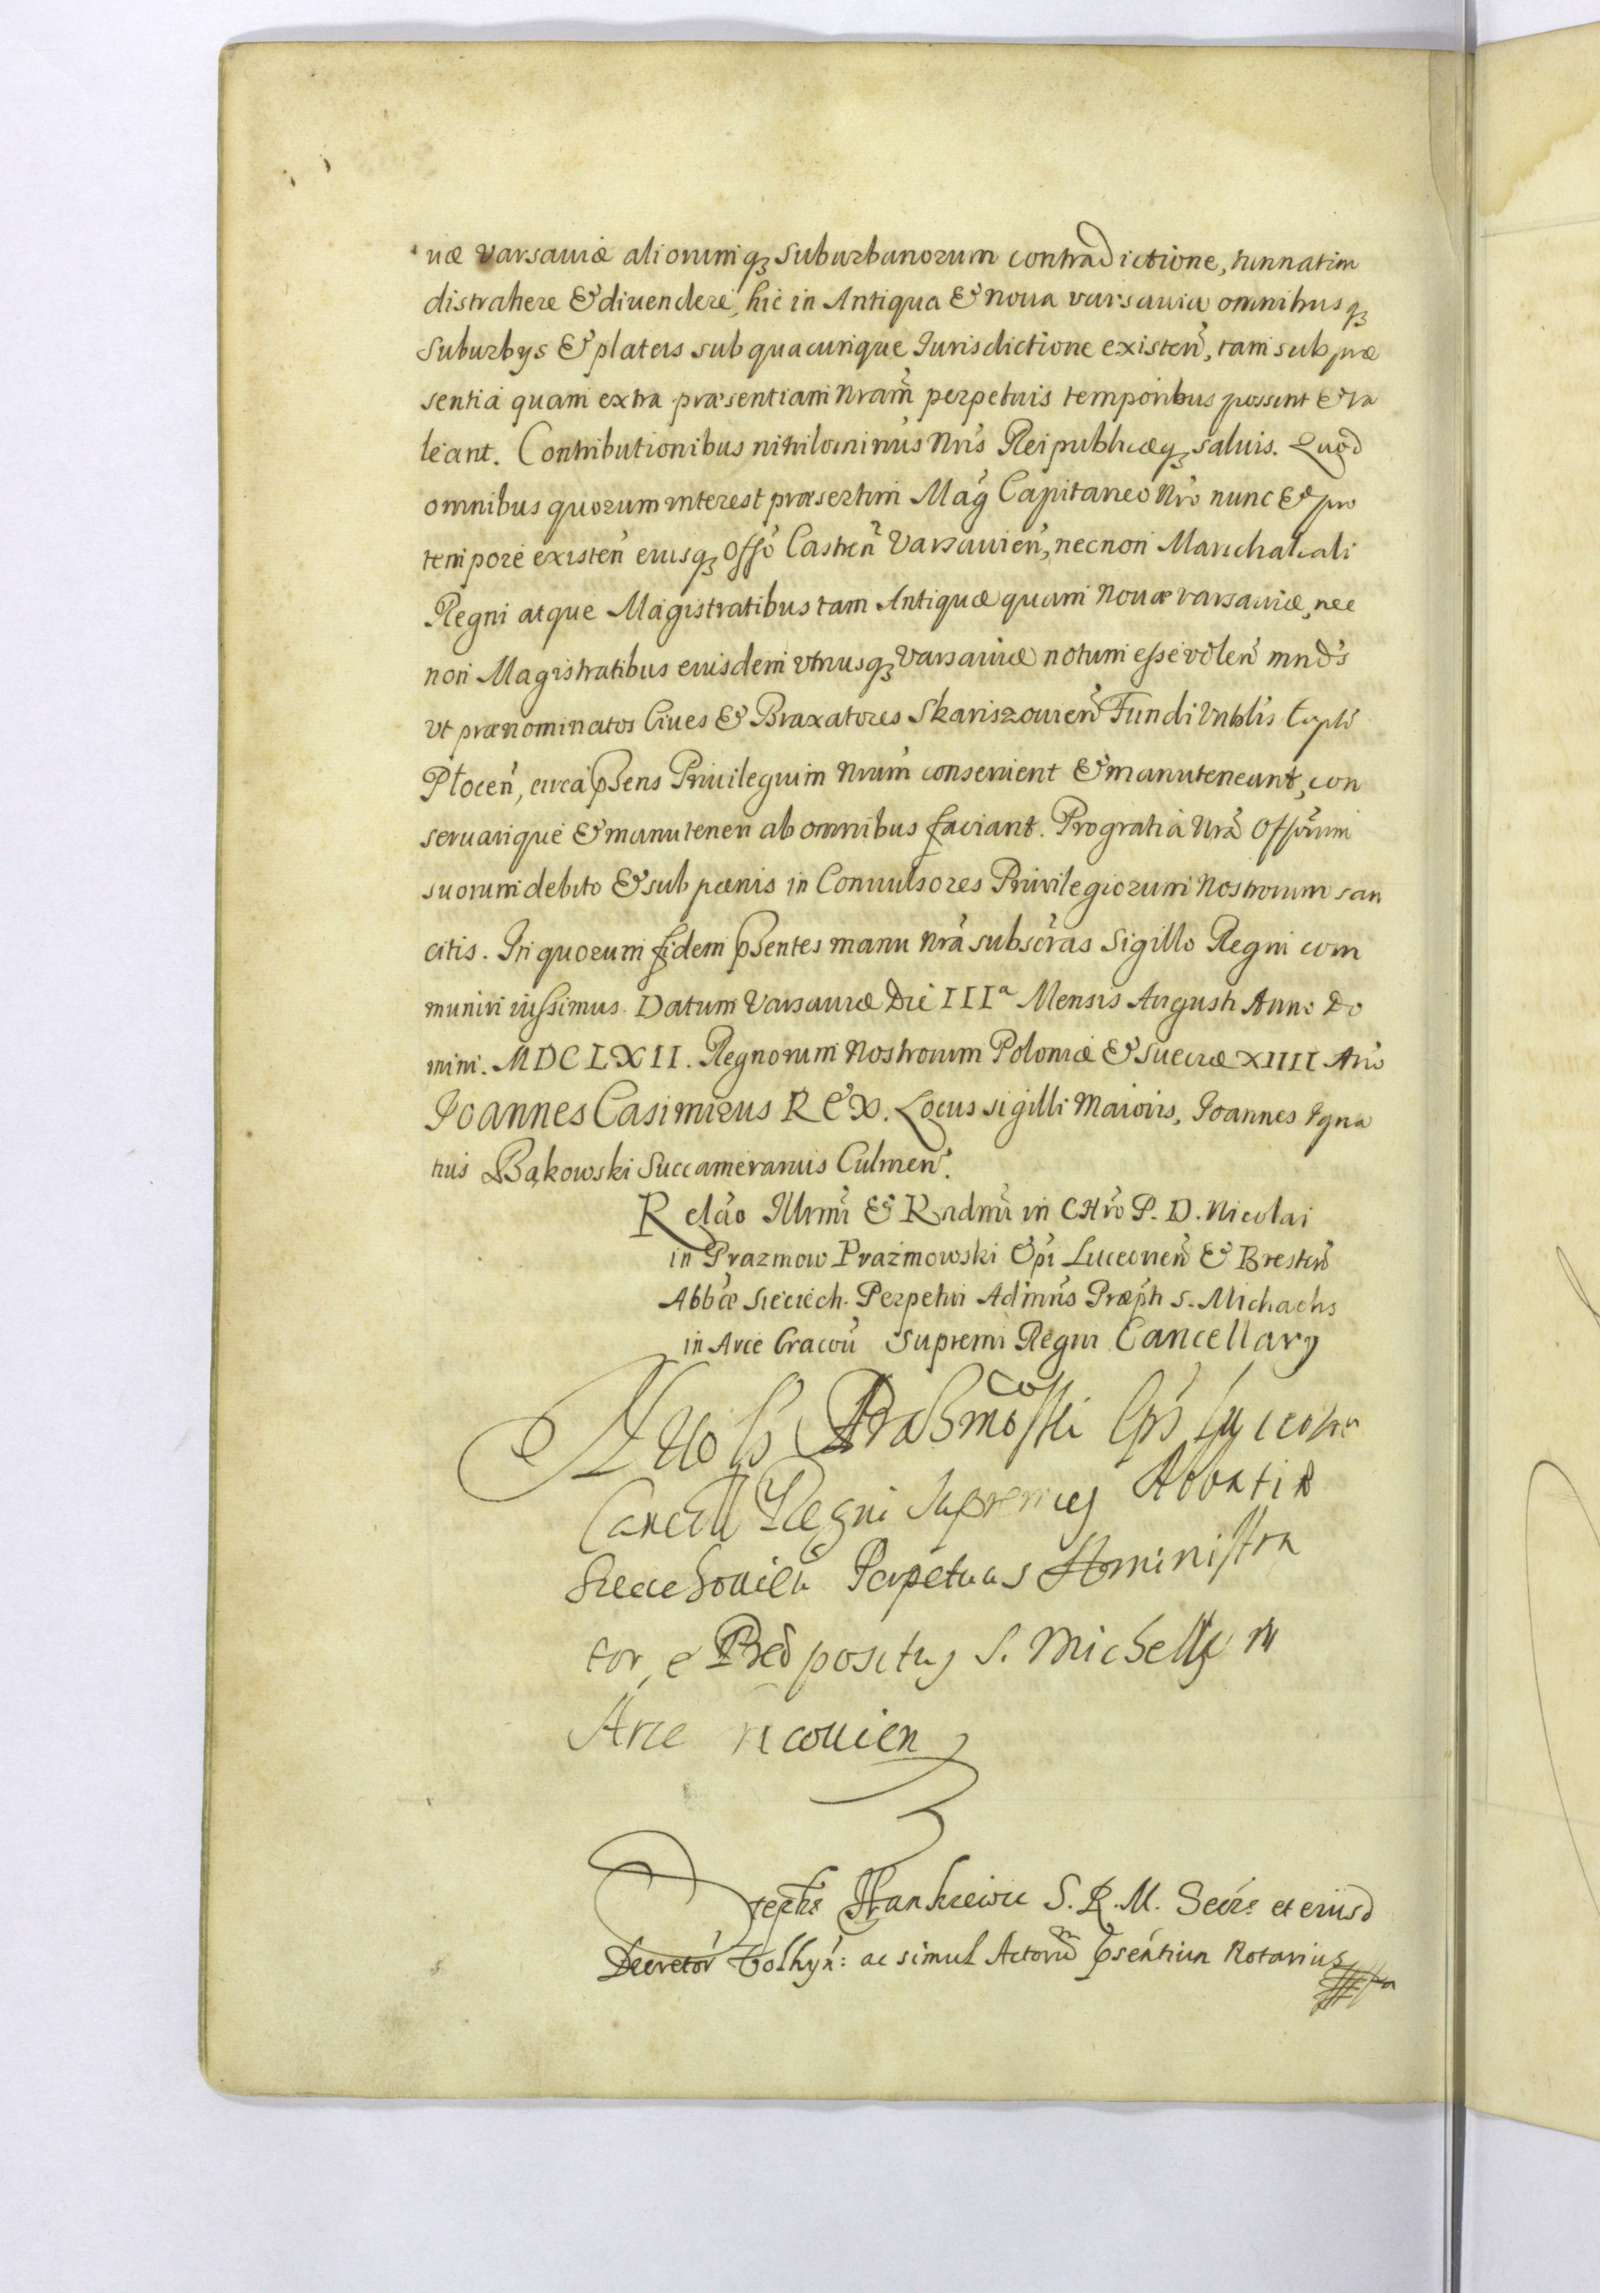 uæ Varsauiæ aliorumq; suburbanorum contradictione, tunnatim
distrahere & diuendere, hic in Antiqua & noua varsauia omnibusq;
suburbys & plateis sub quacunque Iurisdictione existeñ, tam sub præ
sentia quam extra præsentiam Nram̃ perpetuis temporibus possint & va
leant. Contributionibus nihilominus Nris Reipublicæq; saluis. Quod
omnibus quorum interest præsertim Mag̃ Capitaneo Nro nunc & pro
tempore existeñ eiusq; Offo Castreñ Varsauieñ, necnon Marschalcali
Regni atque Magistratibus tam Antiquæ quam Nouæ varsauiæ, nec
non Magistratibus eiusdem vtriusq; Varsauiæ notum esse voleñ mnd̃s
vt prænominatos Ciues & Braxatores Skariszouieñ Fundi Vnbl̃is Capl̃i
Płoceñ, circa p̃sens Priuilegium Nrum̃ conseruent & manuteneant, con
seruarique & manuteneri ab omnibus faciant. Pro gratia Nrã Offorum̃
suorum debito & sub pænis in Conuulsores Priuilegiorum Nostrorum san
citis. In quorum fidem p̃sentes manu Nrã subscr̃as Sigillo Regni com
muniri iussimus. Datum Varsauiæ Die IIIa Mensis Augusti Anno Do
mini. MDCLXII. Regnorum Nostrorum Poloniæ & Sueciæ XIIII Anõ
Joannes Casimirus REX. Locus sigilli Maioris, Joannes Igna
tius Bąkowski Succamerarius Culmeñ.
Relãо Illr̃mi & Rndm̃i in CHrõ P. D. Nicolai
in Prazmow Prażmowski Ep̃i Luceorieñ & Bresteñ
Abb̃æ Sieciech. Perpetui Adm̃ris Præp̃ti S. Michaelis
in Arce Cracou̅ Supremi Regni Cancellary
Prasmoski Ep̃s Luceorien
Cancell Regni Supremus Abbatiæ
Sieciechouień Perpetuus Administra
tor, e Præpositus S. Michellis in
Arce covien
Stephs Hankiewic S. R. M. Secr̃s et eiusd
Decretor̃ Volhyñ: ac simul Actorum p̃sentium Notarius